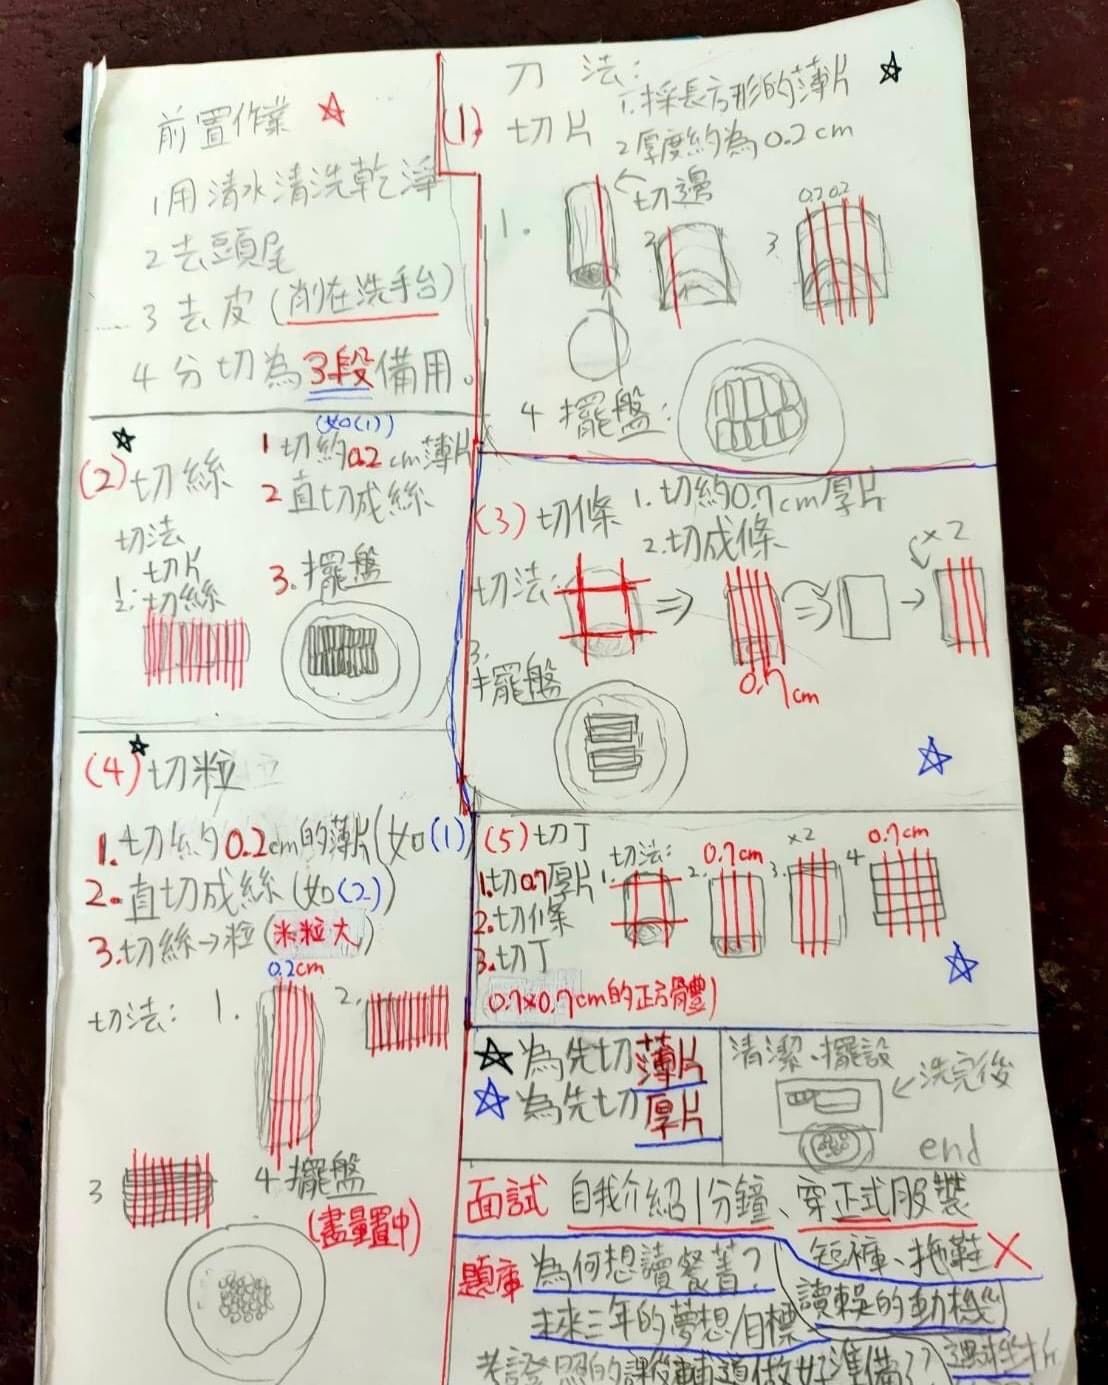 前置作業
1用清水清洗乾淨
2去頭尾
3去皮(削在洗手台)
4分切為3段備用。
刀 法:
(1) 切片
1.採長方形的薄片
2厚度約為0.2cm
切邊
1.
2
3
0.2 0.2
4 擺盤:
(2)切絲
(如(1))
1切約0.2cm薄片
2直切成絲
切法
1.切片
2.切絲
3.擺盤
(3)切條
1.切約0.7cm厚片
2.切成條
×2
切法:
0.7cm
3.擺盤
(4)切粒
1.切約0.2cm的薄片(如(1)
2.直切成絲(如(2))
3.切絲→粒(米粒大)
0.2cm
切法: 1.
2.
3
4擺盤
(盡量置中)
(5)切丁
切法:
1.切0.7厚片
2.切條
3.切丁
1.
2.
0.7cm
3.
×2
4
0.7cm
0.7×0.7cm的正方體)
為先切薄片
為先切厚片
清潔、擺設
洗完後
end
面試 自我介紹1分鐘、穿正式服裝
短褲、拖鞋
題庫 為何想讀餐管?
未來三年的夢想/目標
讀的動機
考證照的課後輔導做好準備??